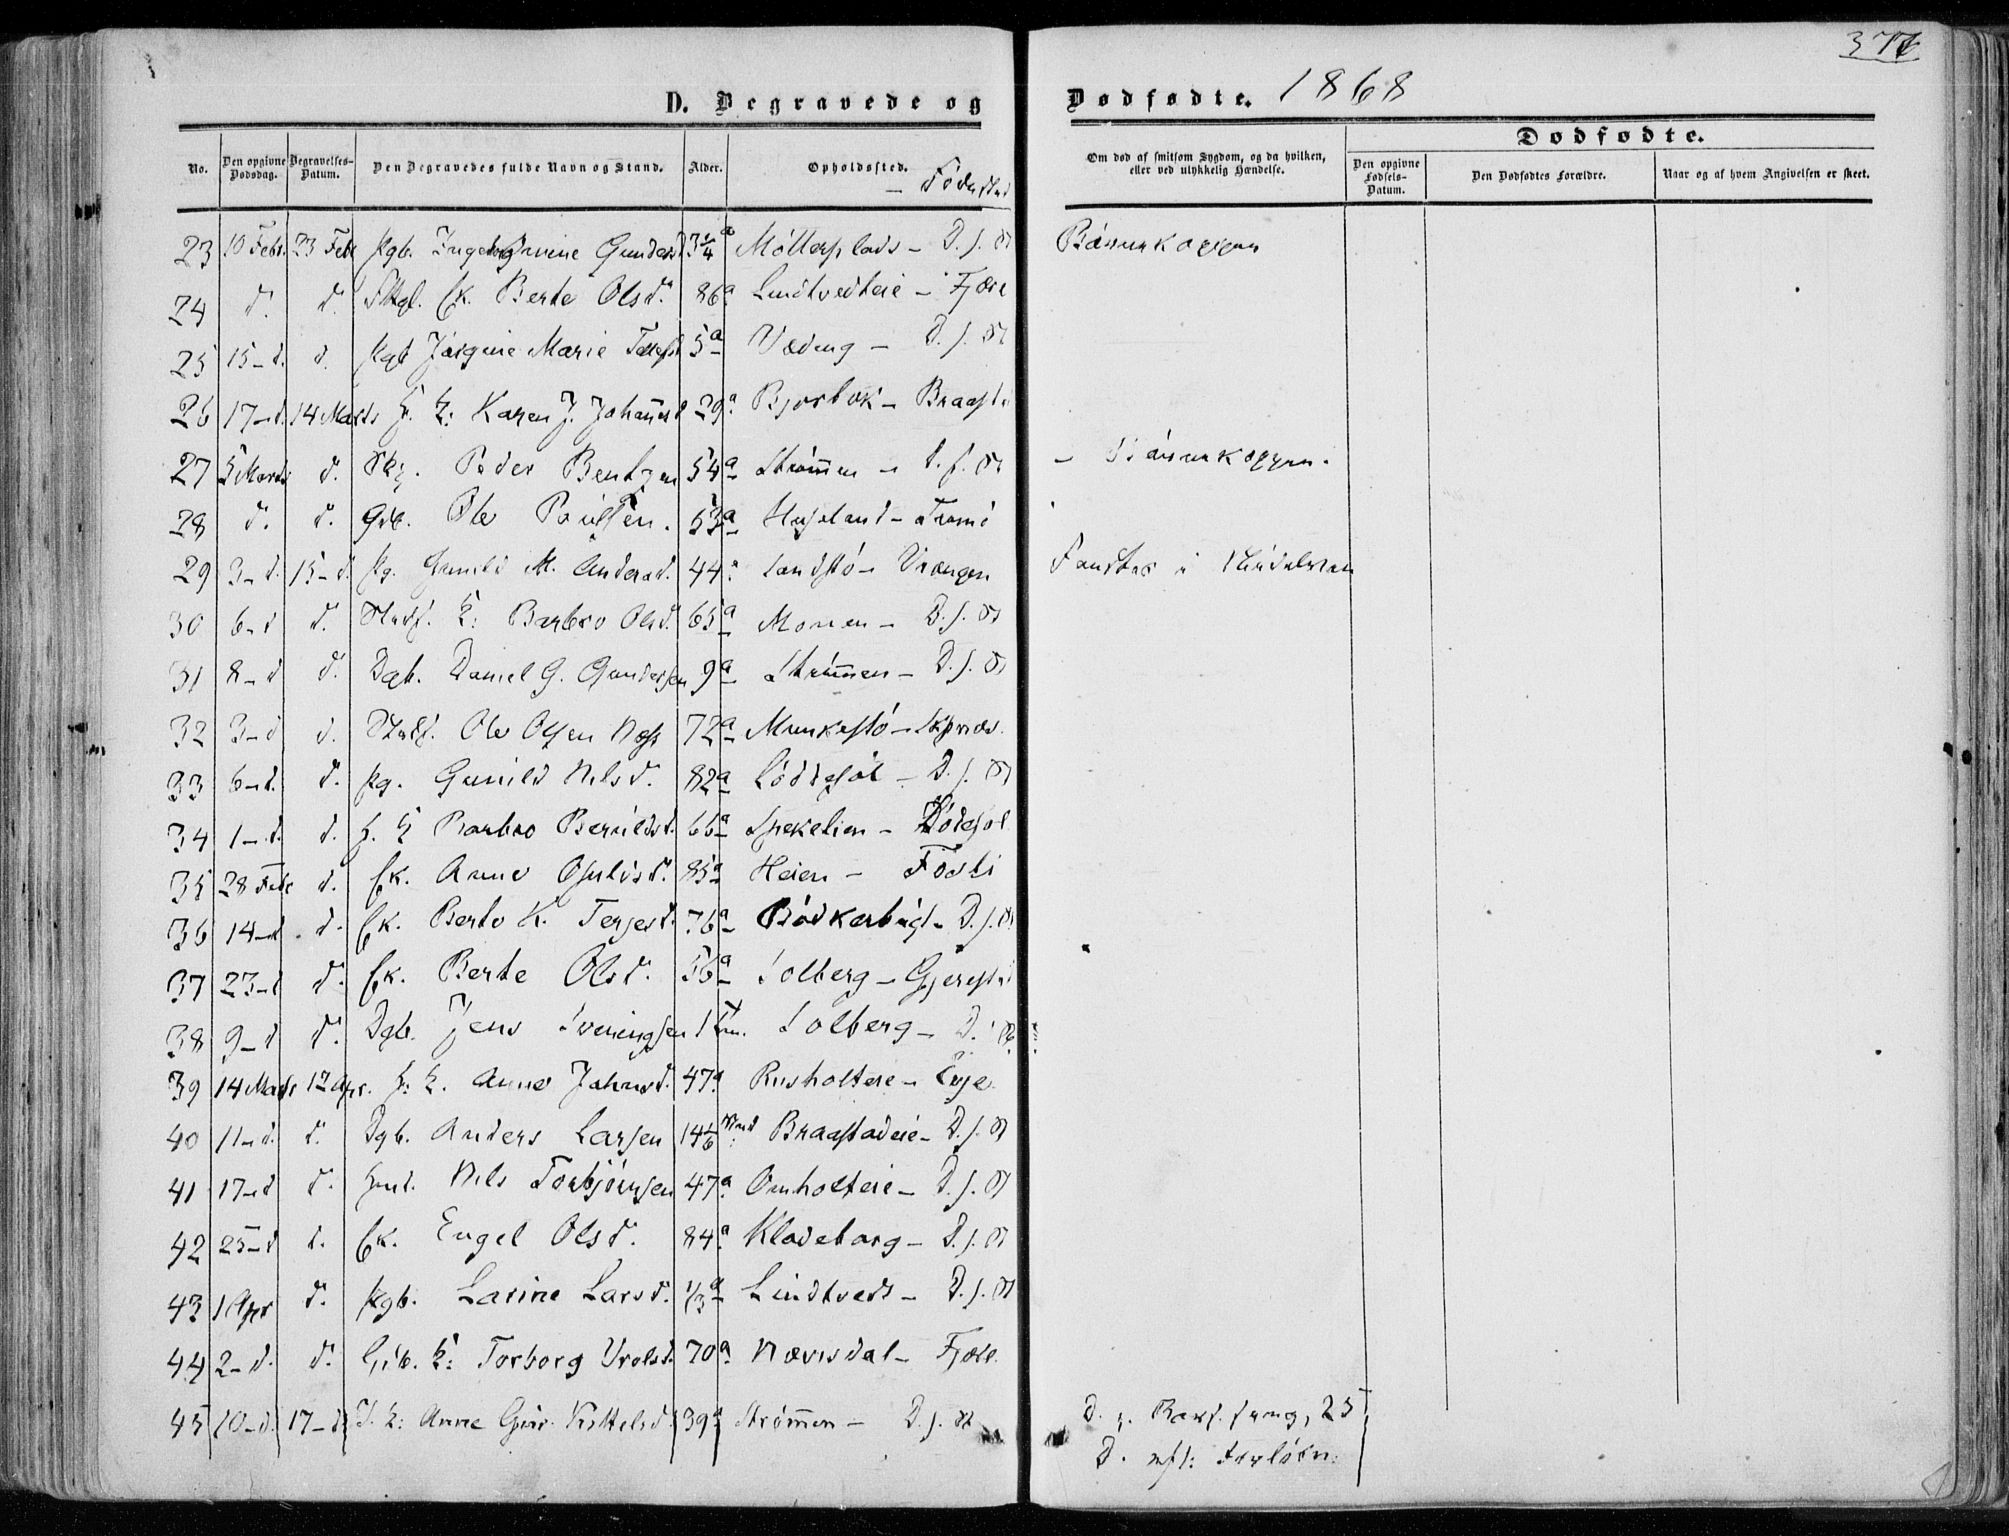 377
D. Begravede og Dødfødte. 1868
Dødfødte.
No. Den opgivne Dødsdag. Begravelses-Datum. Den Begravedes fulde Navn og Stand. Alder. Opholdssted. – Fødested Om død af smitsom Sygdom, og da hvilken, eller ved ulykkelig Hændelse. Den opgivne Fødsels-Datum. Den Dødfødtes Forældre. Naar og af hvem Angivelsen er skeet.
23 10 Febr. 23 Febr Pgb. Gunders 3 1/4 a Møllerplads – D. s. St Børnekopper
24 d. d. Fk. Berte Olsd. 86 a Lindtvedteie – Fjære
25 15-d. d. Pgb Jørgine Marie 5 a Væding – D. s. St
26 17-d. 14 Marts K: Karen J. Johannesd 29 a Bjorbæk – Braasta
27 5 Marts d. Peder Bentzen 54 a Strømmen – D. s. St – Børnekopper.
28 d. d. Gdb. Ole Poulsen. 53 a Hageland – Tromø
29 3-d. 15-d. Pg. Gunild M. Andersd. 44 a Sandstø – Vrængen Funden i Nidelven
30 6-d d. K: Barbro Olsd. 65 a Monen – D. s. St
31 8-d d. Dgb. Daniel G. Gundersen 9 a Strømmen – D. s. St
32 3-d d. Ole Olsen Næss 72 a Munkestø –
33 6-d. d. Pg. Gunild Nilsd. 82 a Løddesøl – D. s. St
34 1-d. d. K Barbro Beruldsd. 66 a Spekelien – Løddesøl
35 28 Febr d. Fk. Anne Osulvsd. 85 a Heien –
36 14-d d. Fk. Berte K. Terjesd. 76 a Bødkerbugt – D. s. St
37 23-d d. Fk. Berte Olsd. 56 a Solberg – Gjerestad
38 9-d d. Dgb. Jens Sveningsen 1 Tm. Solberg – D. s. St
39 14 Marts 12 Apr. K. Anne Johnsd. 47 a Rusholteie – Evje
40 11-d. d. Dgb. Anders Larsen 14 1/6 Braastadeie – D. s. St
41 17-d d. Nils Torbjørnsen 47 a Omholteie – D. s. St
42 25-d d. Fk. Engel Olsd. 84 a Klodeborg – D. s. St
43 1 Apr d. Pgb. Larine Larsd. 1/3 a Lindtvedt – D. s. St
44 2-d. d. Gdb. K: Torborg Vrolsd. 70 a Nævisdal – Fjære
45 10-d. 17-d K: Anne Kittelsd. 39 a Strømmen – D. s. St